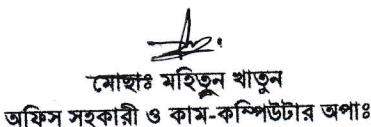 মোছাঃ মহিতুন খাতুন
অফিস সহকারী ও কাম-কম্পিউটার অপাঃ